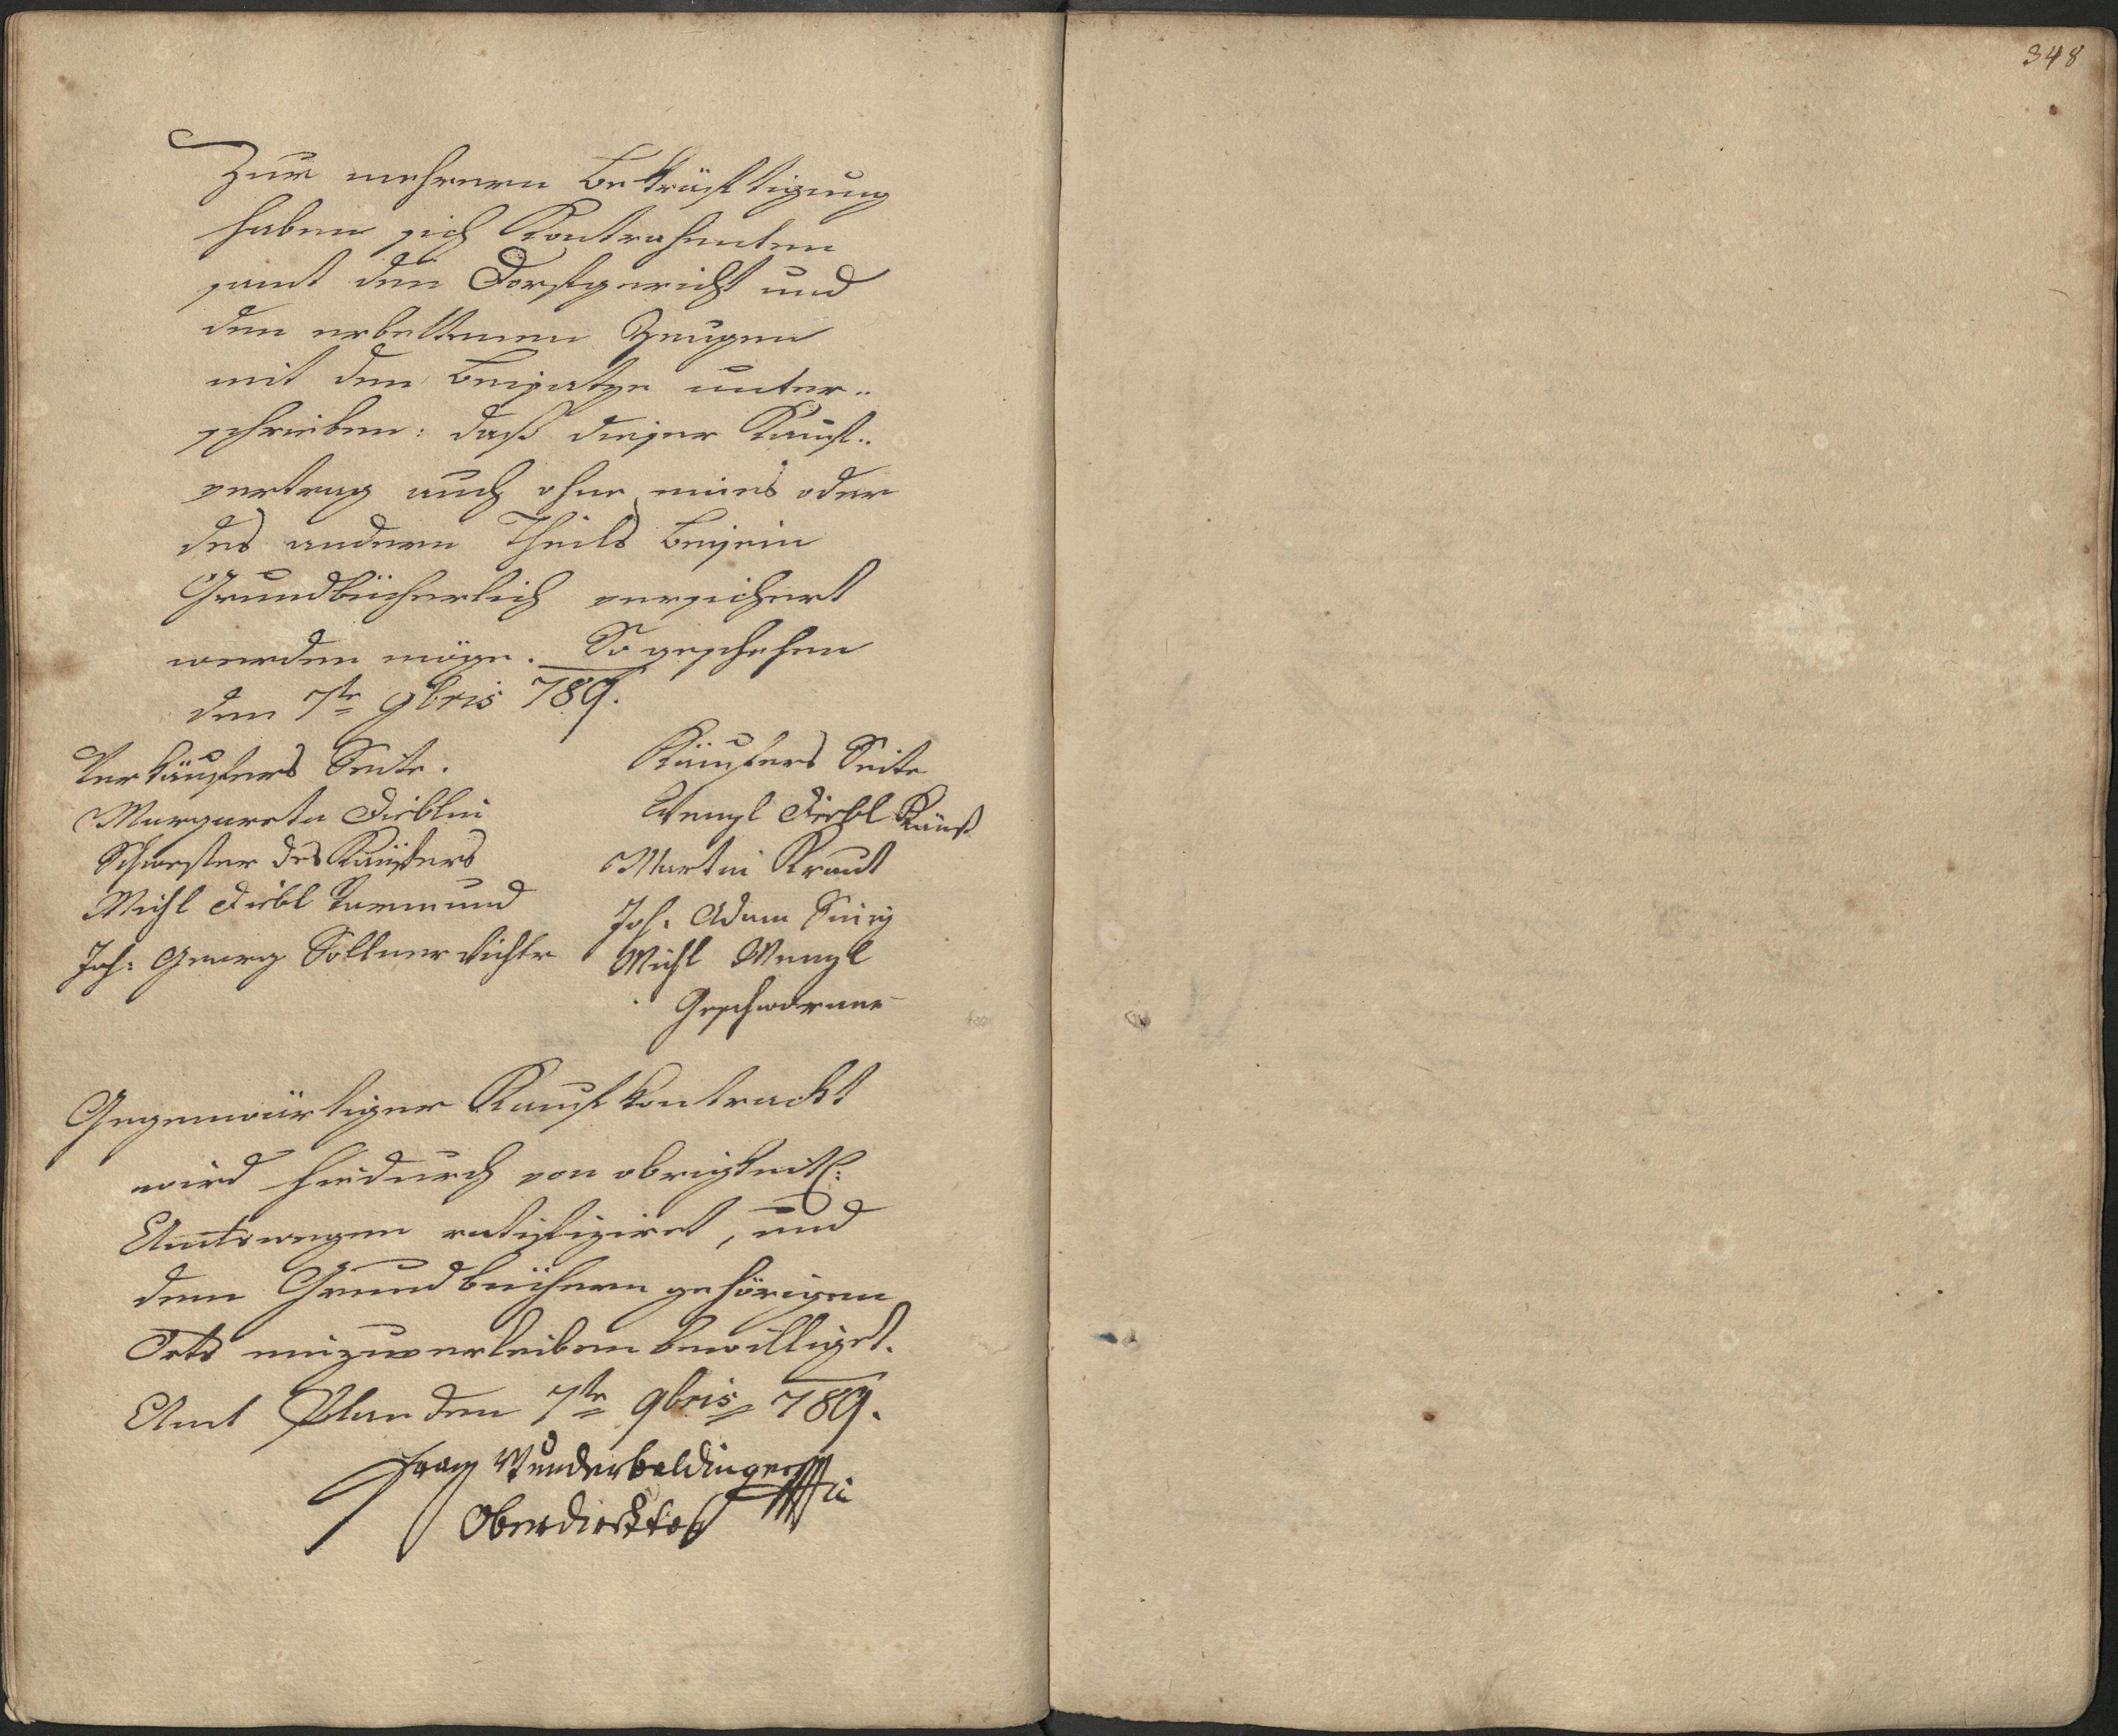 Zur mehrern Bekräftigung
haben sich Kontrahenten
samt den Dorfgericht und
den erbettenen Zeugen
mit dem Beisatze unter..
schrieben: daß dieser Kauf..
vertrag auch ohne eines oder
des andern Theils Beisein
Grundbücherlich versichert
werden möge. So geschehen
den 7te 9bris 789.
Verkäufers Seite.
Margareta Dieblin
Schwester des Käufers
Michl Diebl Vormund
Joh: Georg Söllner Richter
Käufers Seite
Wenzl Diebl Käuf
Martin Kraut
Joh: Adam
Michl Wenzl
Geschworne
Gegenwärtiger Kaufkontrackt
wird hiedurch von obrigkeitl:
Amtswegen ratifiziret, und
dem Grundbüchern gehörigen
Orts einzuverleiben bewilliget.
Amt Plan den 7te 9bris 789.
Franz Wunderbaldinger
Oberdirektor
348